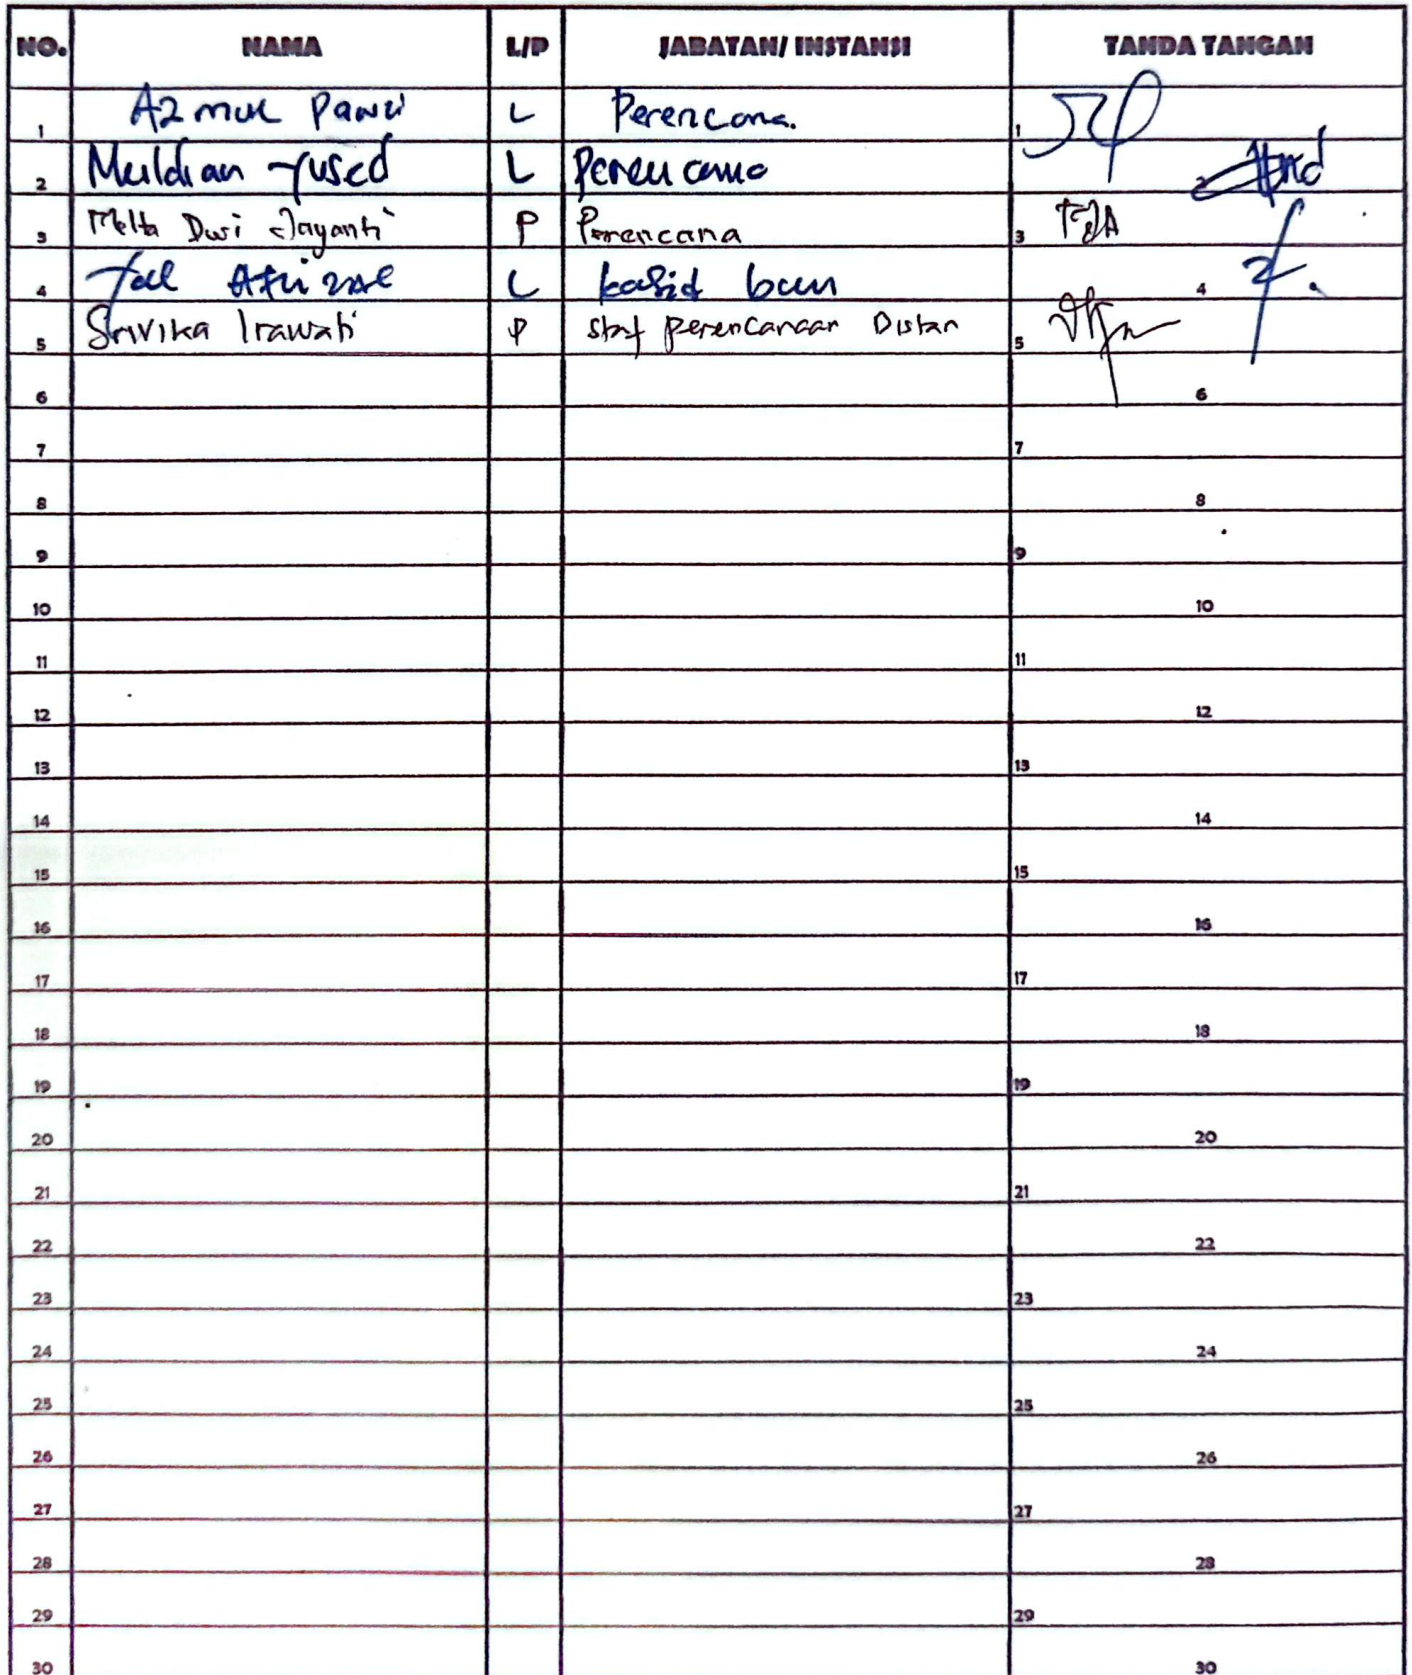 NO. NAMA L/P JABATAN/ INSTANSI TANDA TANGAN
1 L Perencana. 1
2 Muldian Yused L Perencana 2
3 Melta Dwi Jayanti P Perencana 3
4 L kabid bun 4
5 Srivika Irawati P staf perencanaan Distan 5
6 6
7 7
8 8
9 9
10 10
11 11
12 12
13 13
14 14
15 15
16 16
17 17
18 18
19 19
20 20
21 21
22 22
23 23
24 24
25 25
26 26
27 27
28 28
29 29
30 30